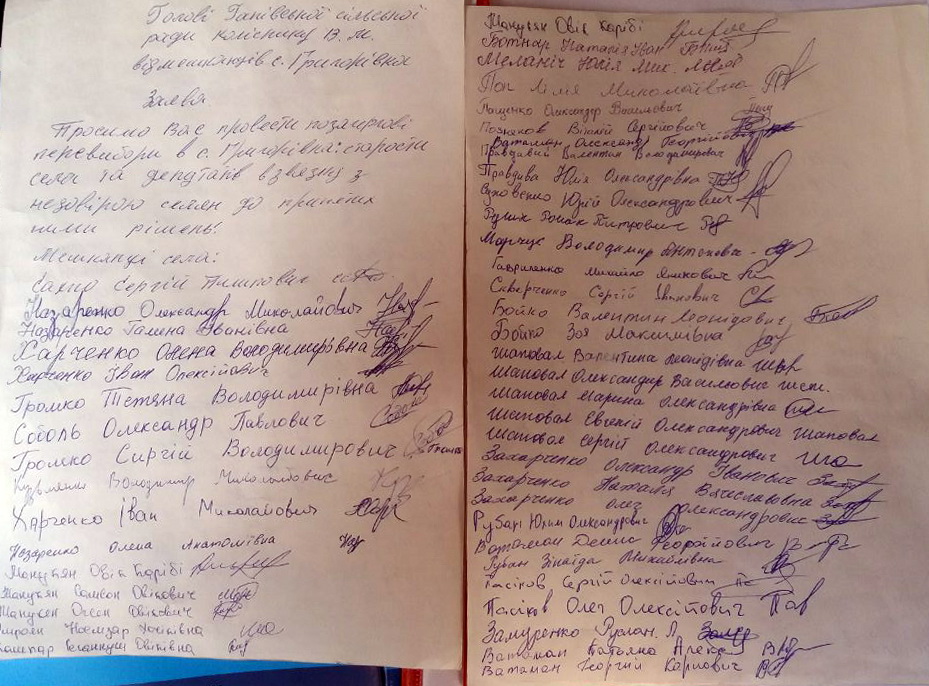 Голові Ганівської сільської
ради Колісника В. М.
від мешканців с. Григорівка
Заява
Просимо Вас провести позачергові
перевибори в с. Григорівка: старости
села та депутатів в звязку з
незовірою селян до прийнятих
ними рішень!
Мешканці села:
Сахно Сергій Пилипович
Назаренко Олександр Миколайович
Назаренко Галена Іванівна
Харченко Олена Володимирівна
Харченко Іван Олексійович
Громко Тетяна Володимирівна
Соболь Олександр Павлович
Громко Сиргій Володимирович
Володимир Миколайович
Харченко Іван Миколайович
Назаренко Олена Анатоліївна
Манукян Овік Карібі
Манукян Самвел Овікович
Манукян Овікович
Овіківна
Манукян Овік Карібі
Ботнар Наталія Іван
Меланіч Юлія Мик.
Поп Лілія Миколаївна
Пащенко Олександр Васильович
Позняков Віталій Сергійович
Ватаман Олександр Георгійович
Правдивий Валентин Володимирович
Правдива Юлія Олександрівна
Суховенко Юрій Олександрович
Роман Петрович
Марчук Володимир Антонович
Гавриленко Михайло
Скверченко Сергій Іванович
Бойко Валентин Леонідович
Бойко Зоя Максимівна
Шаповал Валентина Леонідівна
Шаповал Олександр Васильович
Шаповал Марина Олександрівна
Шаповал Евгеній Олександрович Шаповал
Шаповал Сергій Олександрович
Захарченко Олександр Іванович
Захарченко Наталія Вячеславовна
Захарченко Олег Олександрович
Рубан Юхим Олександрович
Ватаман Денис Георгійович
Рубан Зінаїда Михайлівна
Пасіков Сергій Олексійович
Пасіков Олег Олексійович
Замуренко Руслан Л.
Ватаман Татьяна Алекс
Ватаман Георгий Карпович